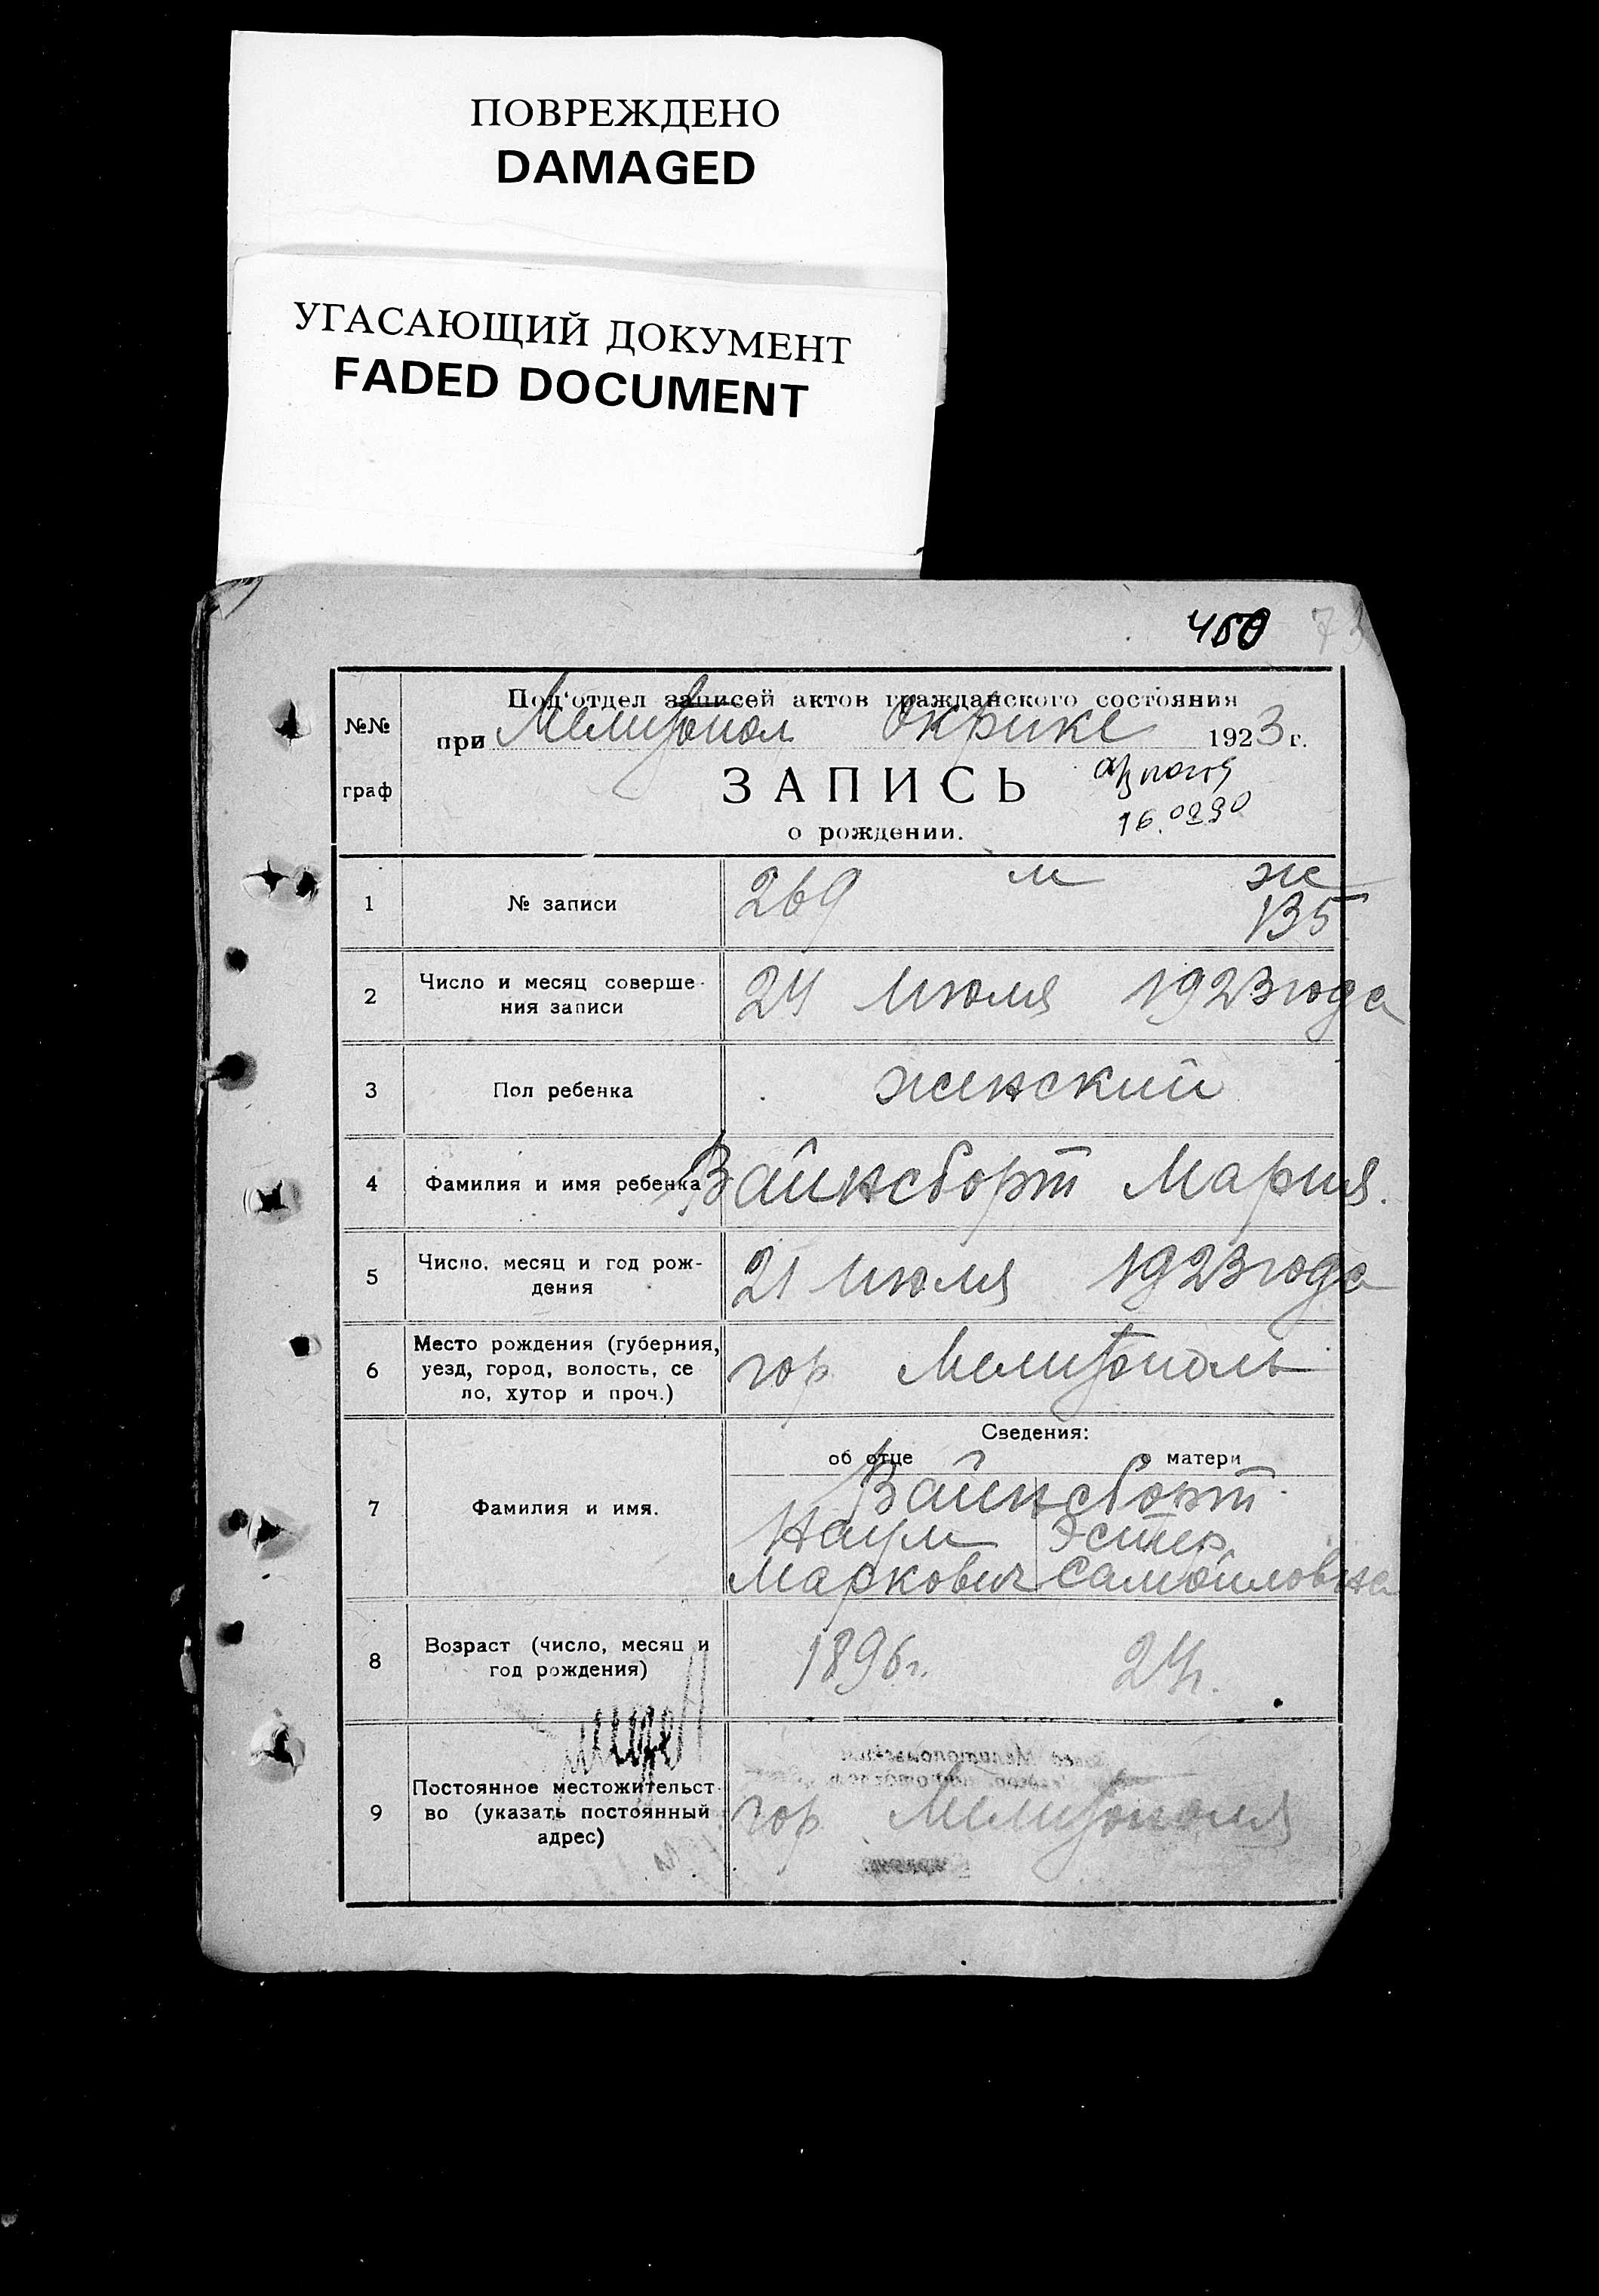 ПОВРЕЖДЕНО
DAMAGED
УГАСАЮЩИЙ ДОКУМЕНТ
FADED DOCUMENT
450 73
№№ граф
Под'отдел записей актов гражданского состояния
при Мелитопол Окрике 1923 г.
ЗАПИСЬ
о рождении.
16.0290
м ж
1 № записи 269 135
2 Число и месяц соверше-
ния записи 24 Июля 1923 года
3 Пол ребенка женский
4 Фамилия и имя ребенка Вайнсборт Мария.
5 Число, месяц и год рож-
дения 21 Июля 1923 года
6 Место рождения (губерния,
уезд, город, волость, се
ло, хутор и проч.) гор Мелитополь
Сведения:
об отце о матери
7 Фамилия и имя. Вайнсборт
Наум Эстер
Маркович Самойловна
8 Возраст (число, месяц и
год рождения) 1896 г. 24 г.
9 Постоянное местожительст
во (указать постоянный
адрес) гор Мелитополя